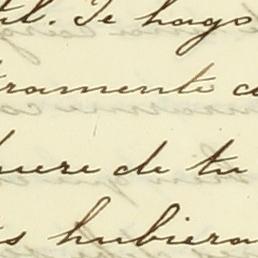 til. Te hago
tramente co
uere de tu
is hubiera